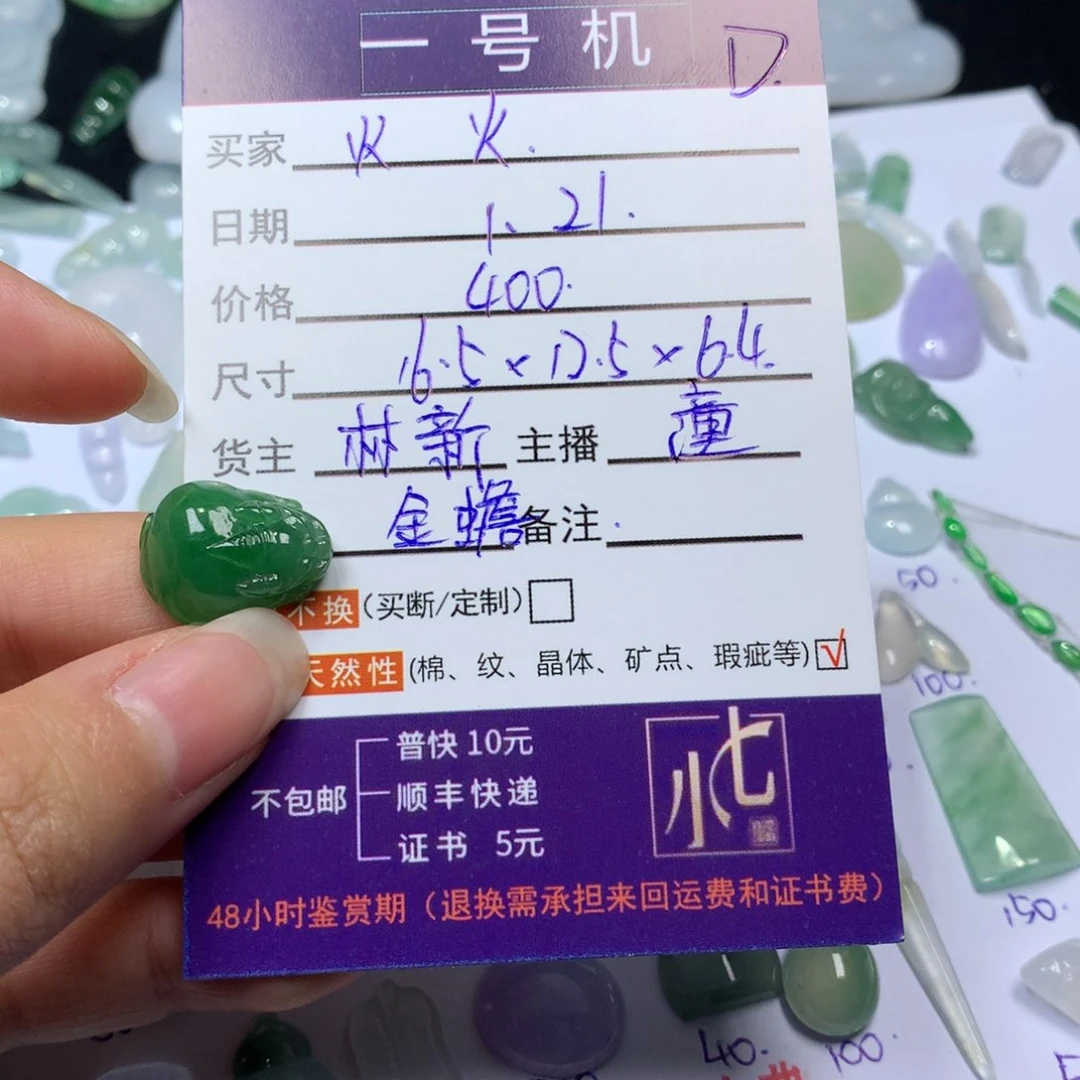 一号机 D.
买家 火 火.
日期 1、21.
价格 400.
尺寸 16.5×12.5×6.4.
货主 林新 主播
金蟾 备注
不换(买断/定制)
天然性(棉、纹、晶体、矿点、瑕疵等)√
普快 10元
不包邮 顺丰快递
证书 5元
小七
48小时鉴赏期（退换需承担来回运费和证书费）
50.
100.
150.
40.
100